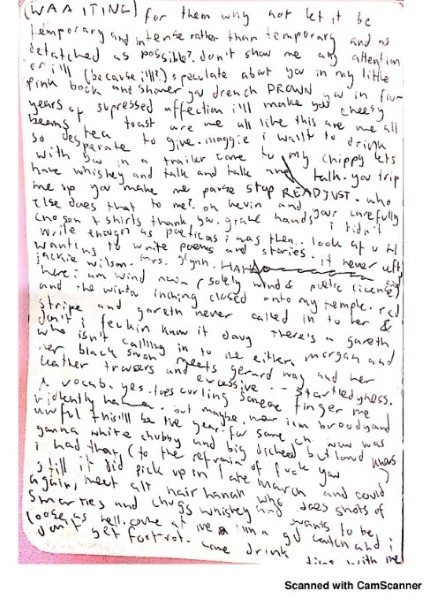 (WAAITING) for them why not let it be
temporary and intense rather than temporary and as
detached as possible? don't show me any attention
or i'll (because i'll?) speculate about you in my little
pink book and shower you drench DROWN you in four
years of supressed affection i'll make you cheesy
beans tea toast are we all like this are we all
so desperate to give. maggie i want to drink
with you in a trailer come to my chippy lets
have whiskey and talk and talk and talk. you trip
me up you make me pause stop READJUST. who
else does that to me? oh kevin and your carefully
chosen t shirts thank you. grate hands i didn't
write enough as poetic as i was then.. look at u
wanting to write poems and stories. it never left
jackie wilson. mrs. glynn.
here i am wind again (solely wind & poetic license)
and the winter inching closed onto my temple. red
stripe and gareth never called in to her &
don't i feckin know it davy there's a gareth
who isn't calling in to me either. morgan and
her black swan meets gerard way and her
leather trousers and excessive -- startledyness.
a vocab? yes. toes curling finger me
violently. but maybe. now im broody and
awful this'll be the year for some
gonna white chubby and big and loud
i had that (to the refrain of fuck you
still it did pick up in late march and could
again, meet alt hair hanah who does shots of
smarties and chugs whiskey and wants to be
loose as hell. come at me im a gd catch and i
don't get footrot. come drink with me
Scanned with CamScanner